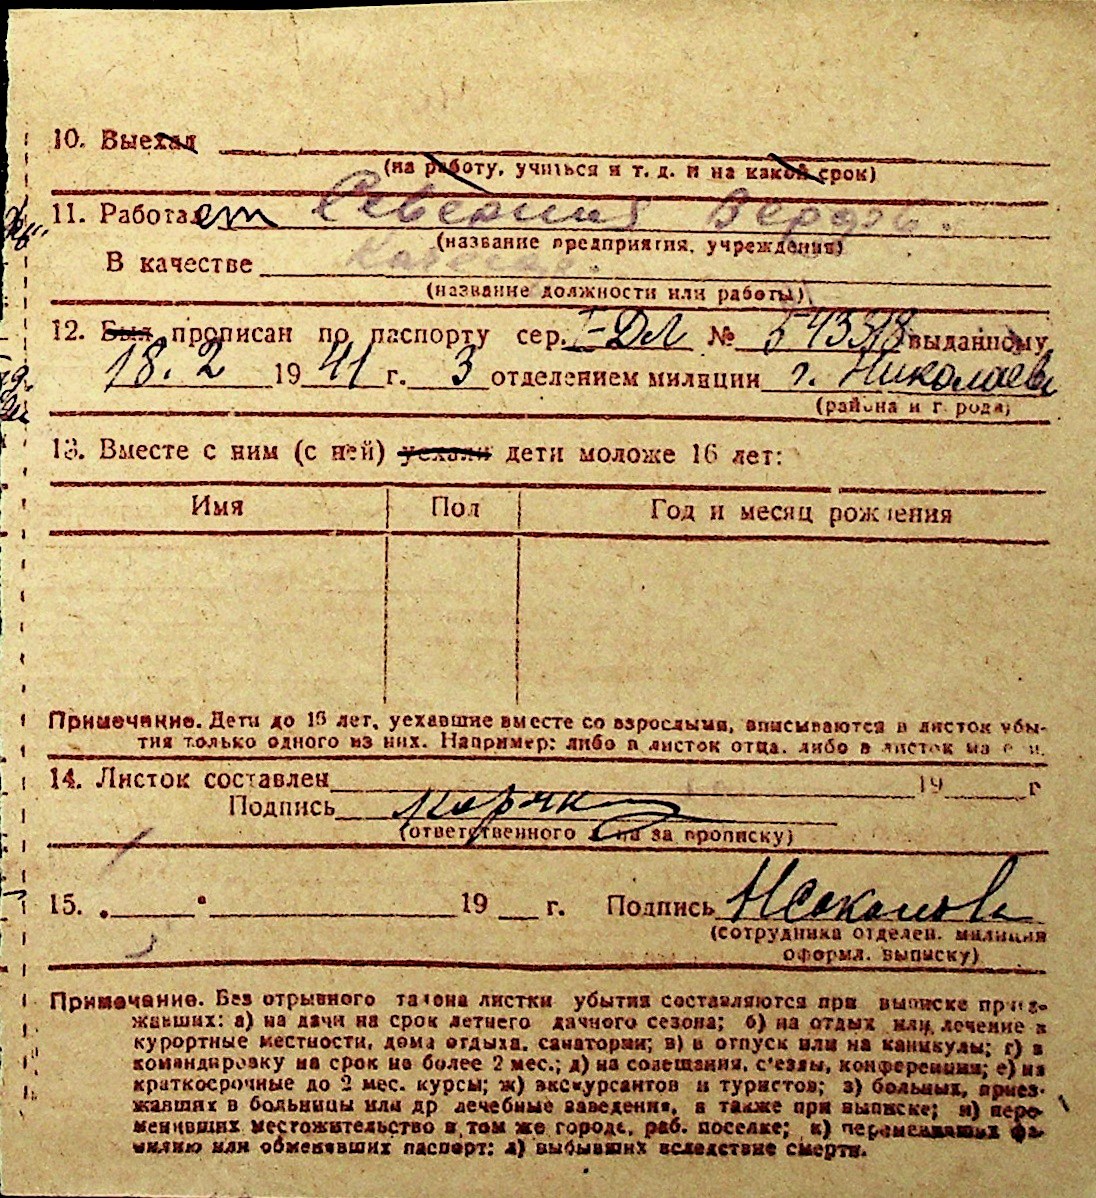 10. Выехал
(на работу, учиться и т. д. и на какой срок)
11. Работает Северная Верфь.
(название предприятия, учреждения)
В качестве
(название должности или работы)
12. Был прописан по паспорту сер. I-ДЛ № 543378 выданному
18. 2 1941 г. 3 отделением милиции г. Николаева
(района и города)
13. Вместе с ним (с ней) уехали дети моложе 16 лет:
Имя Пол Год и месяц рождения
Примечание. Дети до 16 лет, уехавшие вместе со взрослыми, вписываются в листок убы-
тия только одного из них. Например: либо в листок отца, либо в листок матери.
14. Листок составлен 19 г
Подпись
(ответственного лица за прописку)
15. . " 19 г. Подпись Исаколова
(сотрудника отделен. милиции
оформл. выписку)
Примечание. Без отрывного талона листки убытия составляются при выписке приез-
жавших: а) на дачи на срок летнего дачного сезона; б) на отдых или лечение в
курортные местности, дома отдыха, санатории; в) в отпуск или на каникулы; г) в
командировку на срок не более 2 мес.; д) на совещания, с'езды, конференции; е) на
краткосрочные до 2 мес. курсы; ж) экскурсантов и туристов; з) больных, приез-
жавших в больницы или др лечебные заведения, а также при выписке; и) пере-
менивших местожительство в том же городе, раб. поселке; к) переменивших фа-
милию или обменявших паспорт; л) выбывших вследствие смерти.